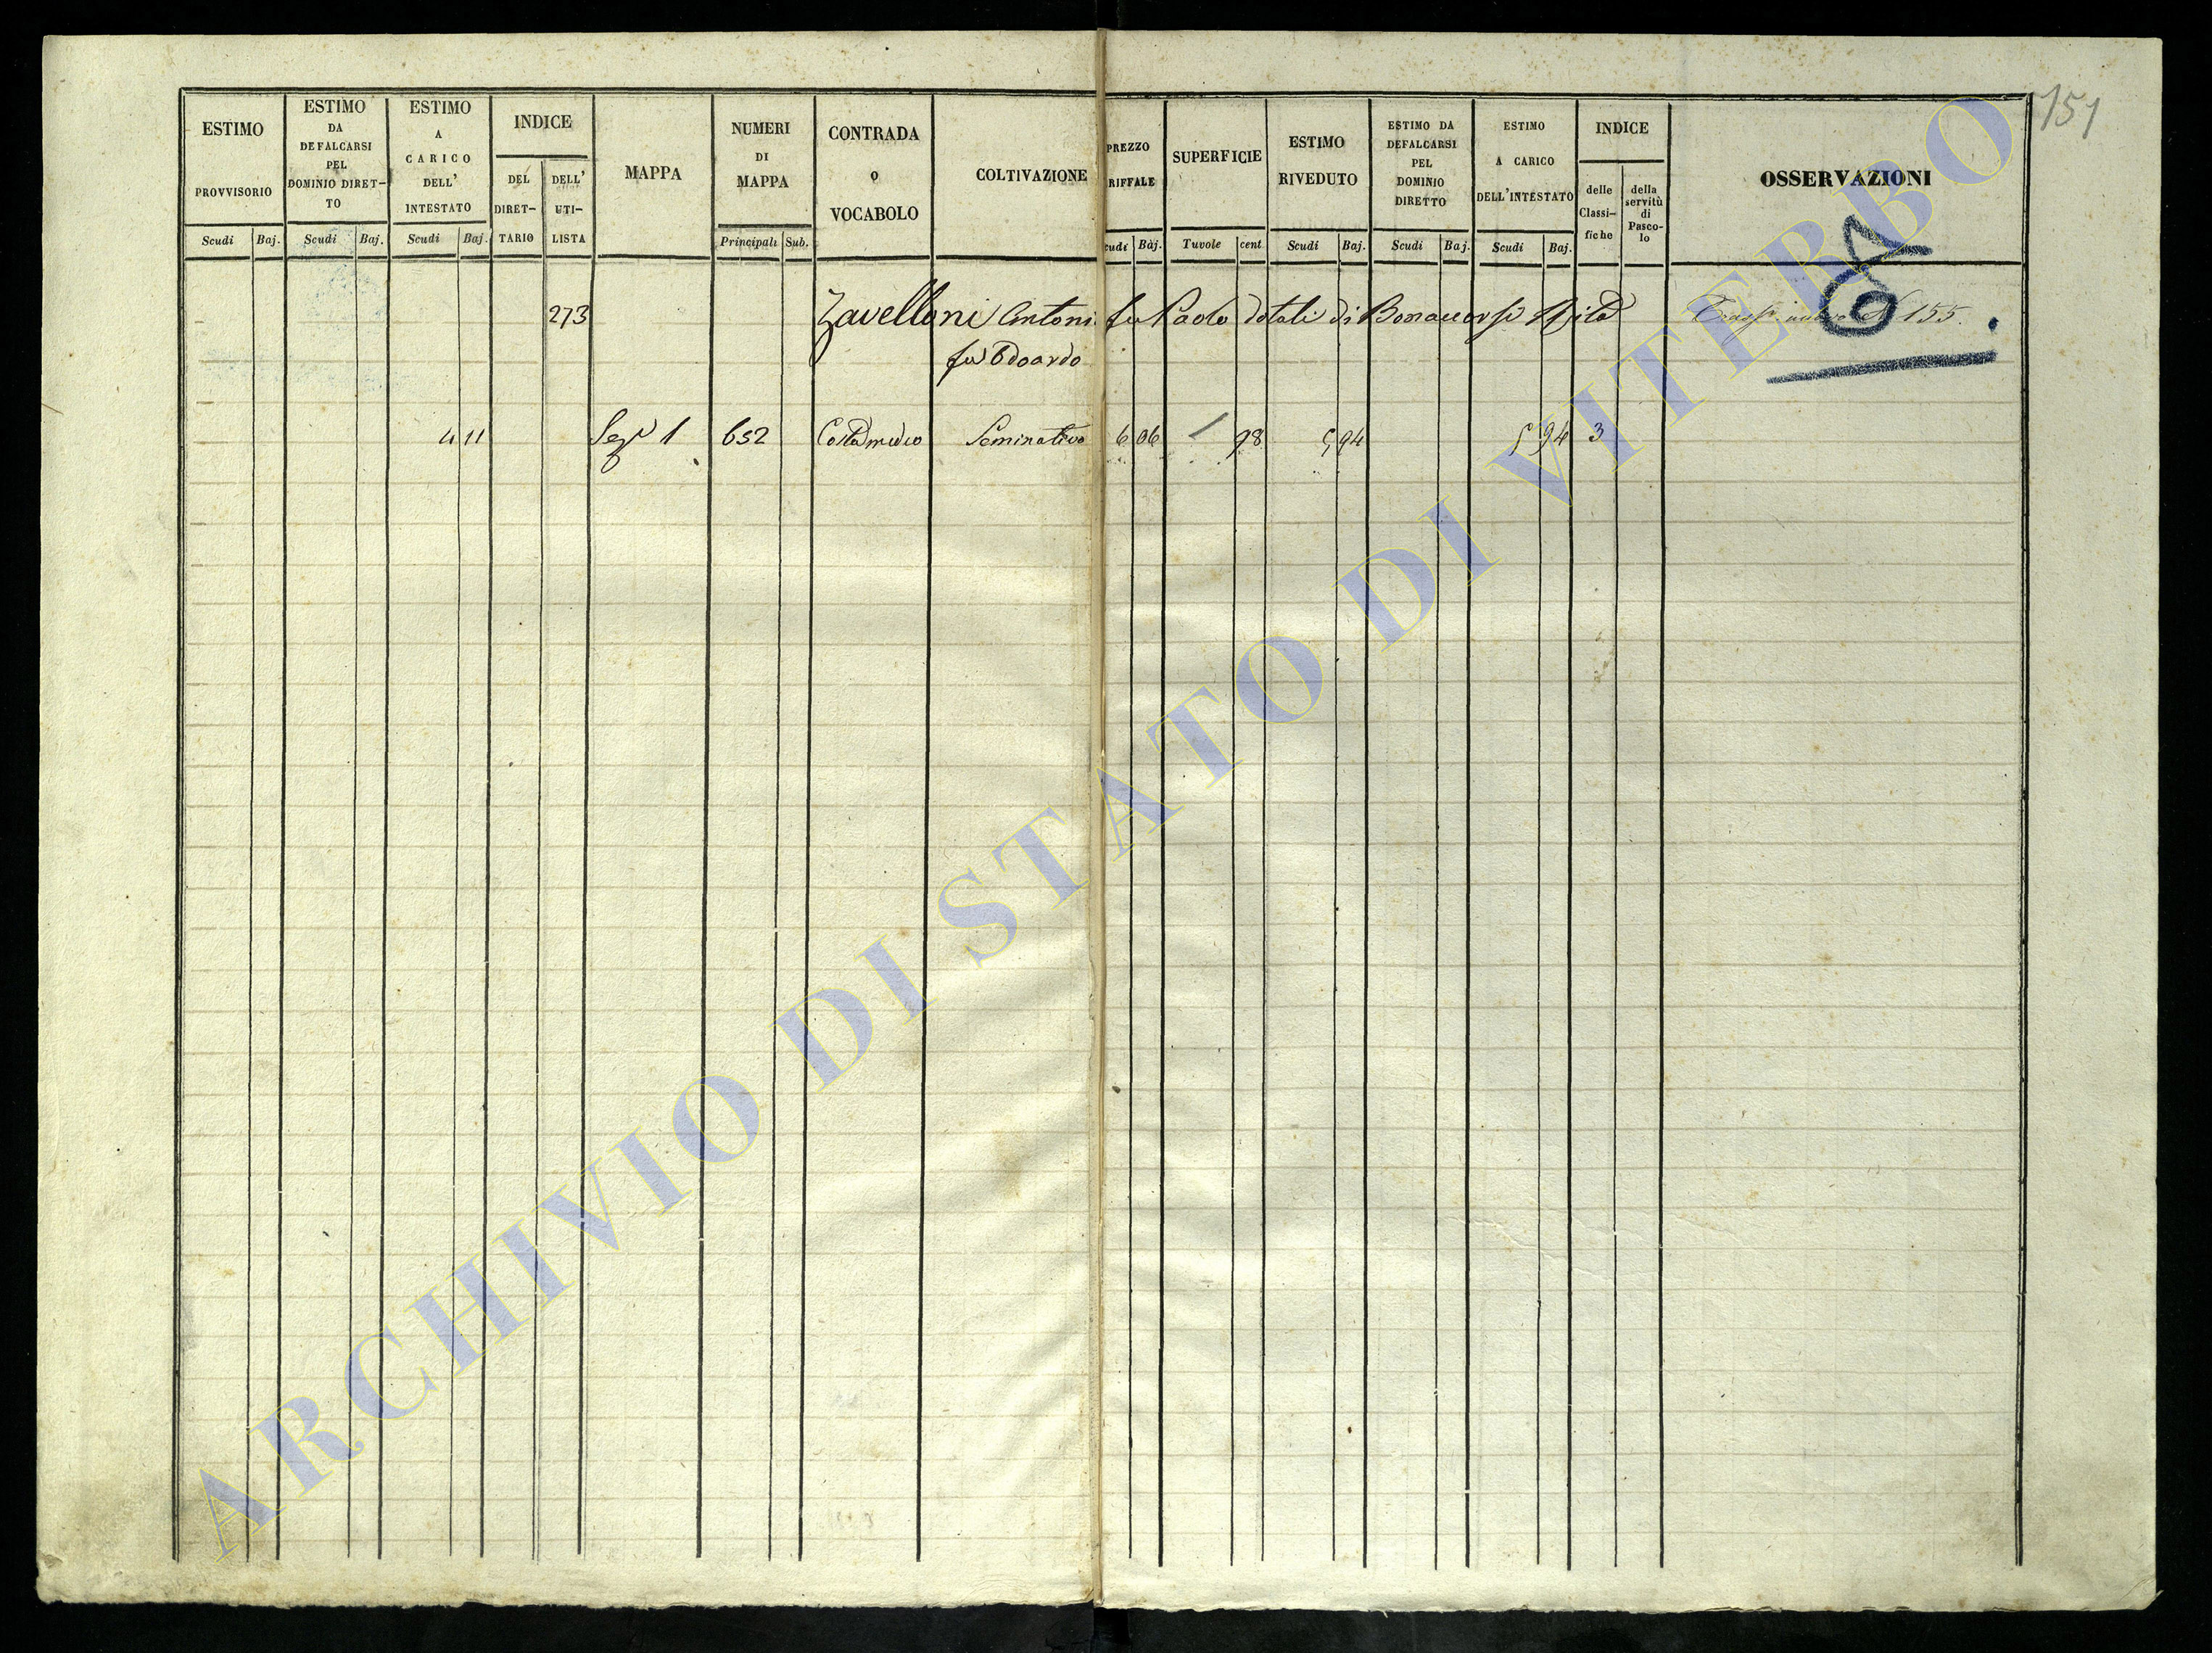 151
ESTIMO PROVVISORIO
Scudi Baj.
ESTIMO DA DEFALCARSI PEL DOMINIO DIRET-TO
Scudi Baj.
ESTIMO A CARICO DELL' INTESTATO
Scudi Baj.
INDICE
DEL DIRET-TARIO
DELL' UTI-LISTA
MAPPA
NUMERI DI MAPPA
Principali Sub.
CONTRADA o VOCABOLO
COLTIVAZIONE
PREZZO RIFFALE
cudi Baj.
SUPERFICIE
Tavole cent
ESTIMO RIVEDUTO
Scudi Baj.
ESTIMO DA DEFALCARSI PEL DOMINIO DIRETTO
Scudi Baj.
ESTIMO A CARICO DELL'INTESTATO
Scudi Baj.
INDICE
delle Classi-fiche
della servitù di Pasco-lo
OSSERVAZIONI
273 Zavelloni Antonio fu Paolo dotali di Bonaccorsi Rita
155.
fu Edoardo
4 11 Seze 1 652 Seminativo 6 06 98 5 94 5 94 3
ARCHIVIO DI STATO DI VITERBO